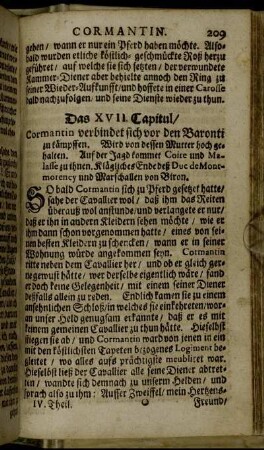 CORMANTIN. 209
gehen/ wann er nur ein Pferd haben möchte. Also-
bald wurden etliche köstlich-geschmückte Roß herzu
geführet/ auf welche sie sich setzten/ der verwundete
Kammer-Diener aber behielte annoch den Ring zu
seiner Wieder-Aufkunfft/ und hoffete in einer Carosse
bald nachzufolgen/ und seine Dienste wieder zu thun.
Das XVII. Capitul/
Cormantin verbindet sich vor den Baronti
zu kämpffen. Wird von dessen Mutter hoch ge-
halten. Auf der Jagd kommet Coire und Ma-
lasse zu ihnen. Klägliches Ende deß Duc de Mont-
morency und Marschallen von Biron.
SO bald Cormantin sich zu Pferd gesetzt hatte/
sahe der Cavallier wol/ daß ihm das Reiten
überauß wol anstunde/ und verlangete er nur/
daß er ihn in andern Kleidern sehen möchte/ wie er
ihm dann schon vorgenommen hatte/ eines von sei-
nen besten Kleidern zu schencken/ wann er in seiner
Wohnung würde angekommen seyn. Cormantin
ritte neben dem Cavallier her/ und ob er gleich ger-
ne gewust hätte/ wer derselbe eigentlich wäre/ fand er
doch keine Gelegenheit/ mit einem seiner Diener
deßfalls allein zu reden. Endlich kamen sie zu einem
ansehnlichen Schloß/ in welches sie einkehreten/ wor-
an unser Held genugsam erkannte/ daß er es mit
keinem gemeinen Cavallier zu thun hätte. Hieselbst
stiegen sie ab/ und Cormantin ward von jenen in ein
mit den köstlichsten Tapeten bezogenes Logiment be-
gleitet/ wo alles aufs prächtigste meubliret war.
Hieselbst ließ der Cavallier alle seine Diener abtre-
ten/ wandte sich demnach zu unserm Helden/ und
sprach also zu ihm: Ausser Zweiffel/ mein Hertzens-
IV. Theil. O Freund/